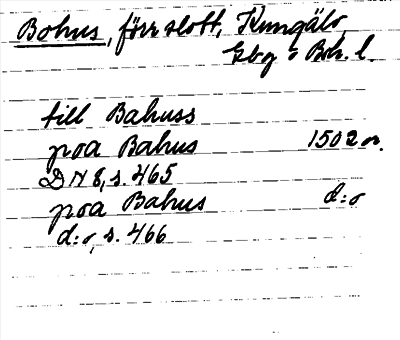 Bohus, förr slott, Kungälv,
Gbg o Boh. l.
till Bahuss
poa Bahus 1502 or.
DN 8, s. 465
poa Bahus d:o
d:o, s. 466